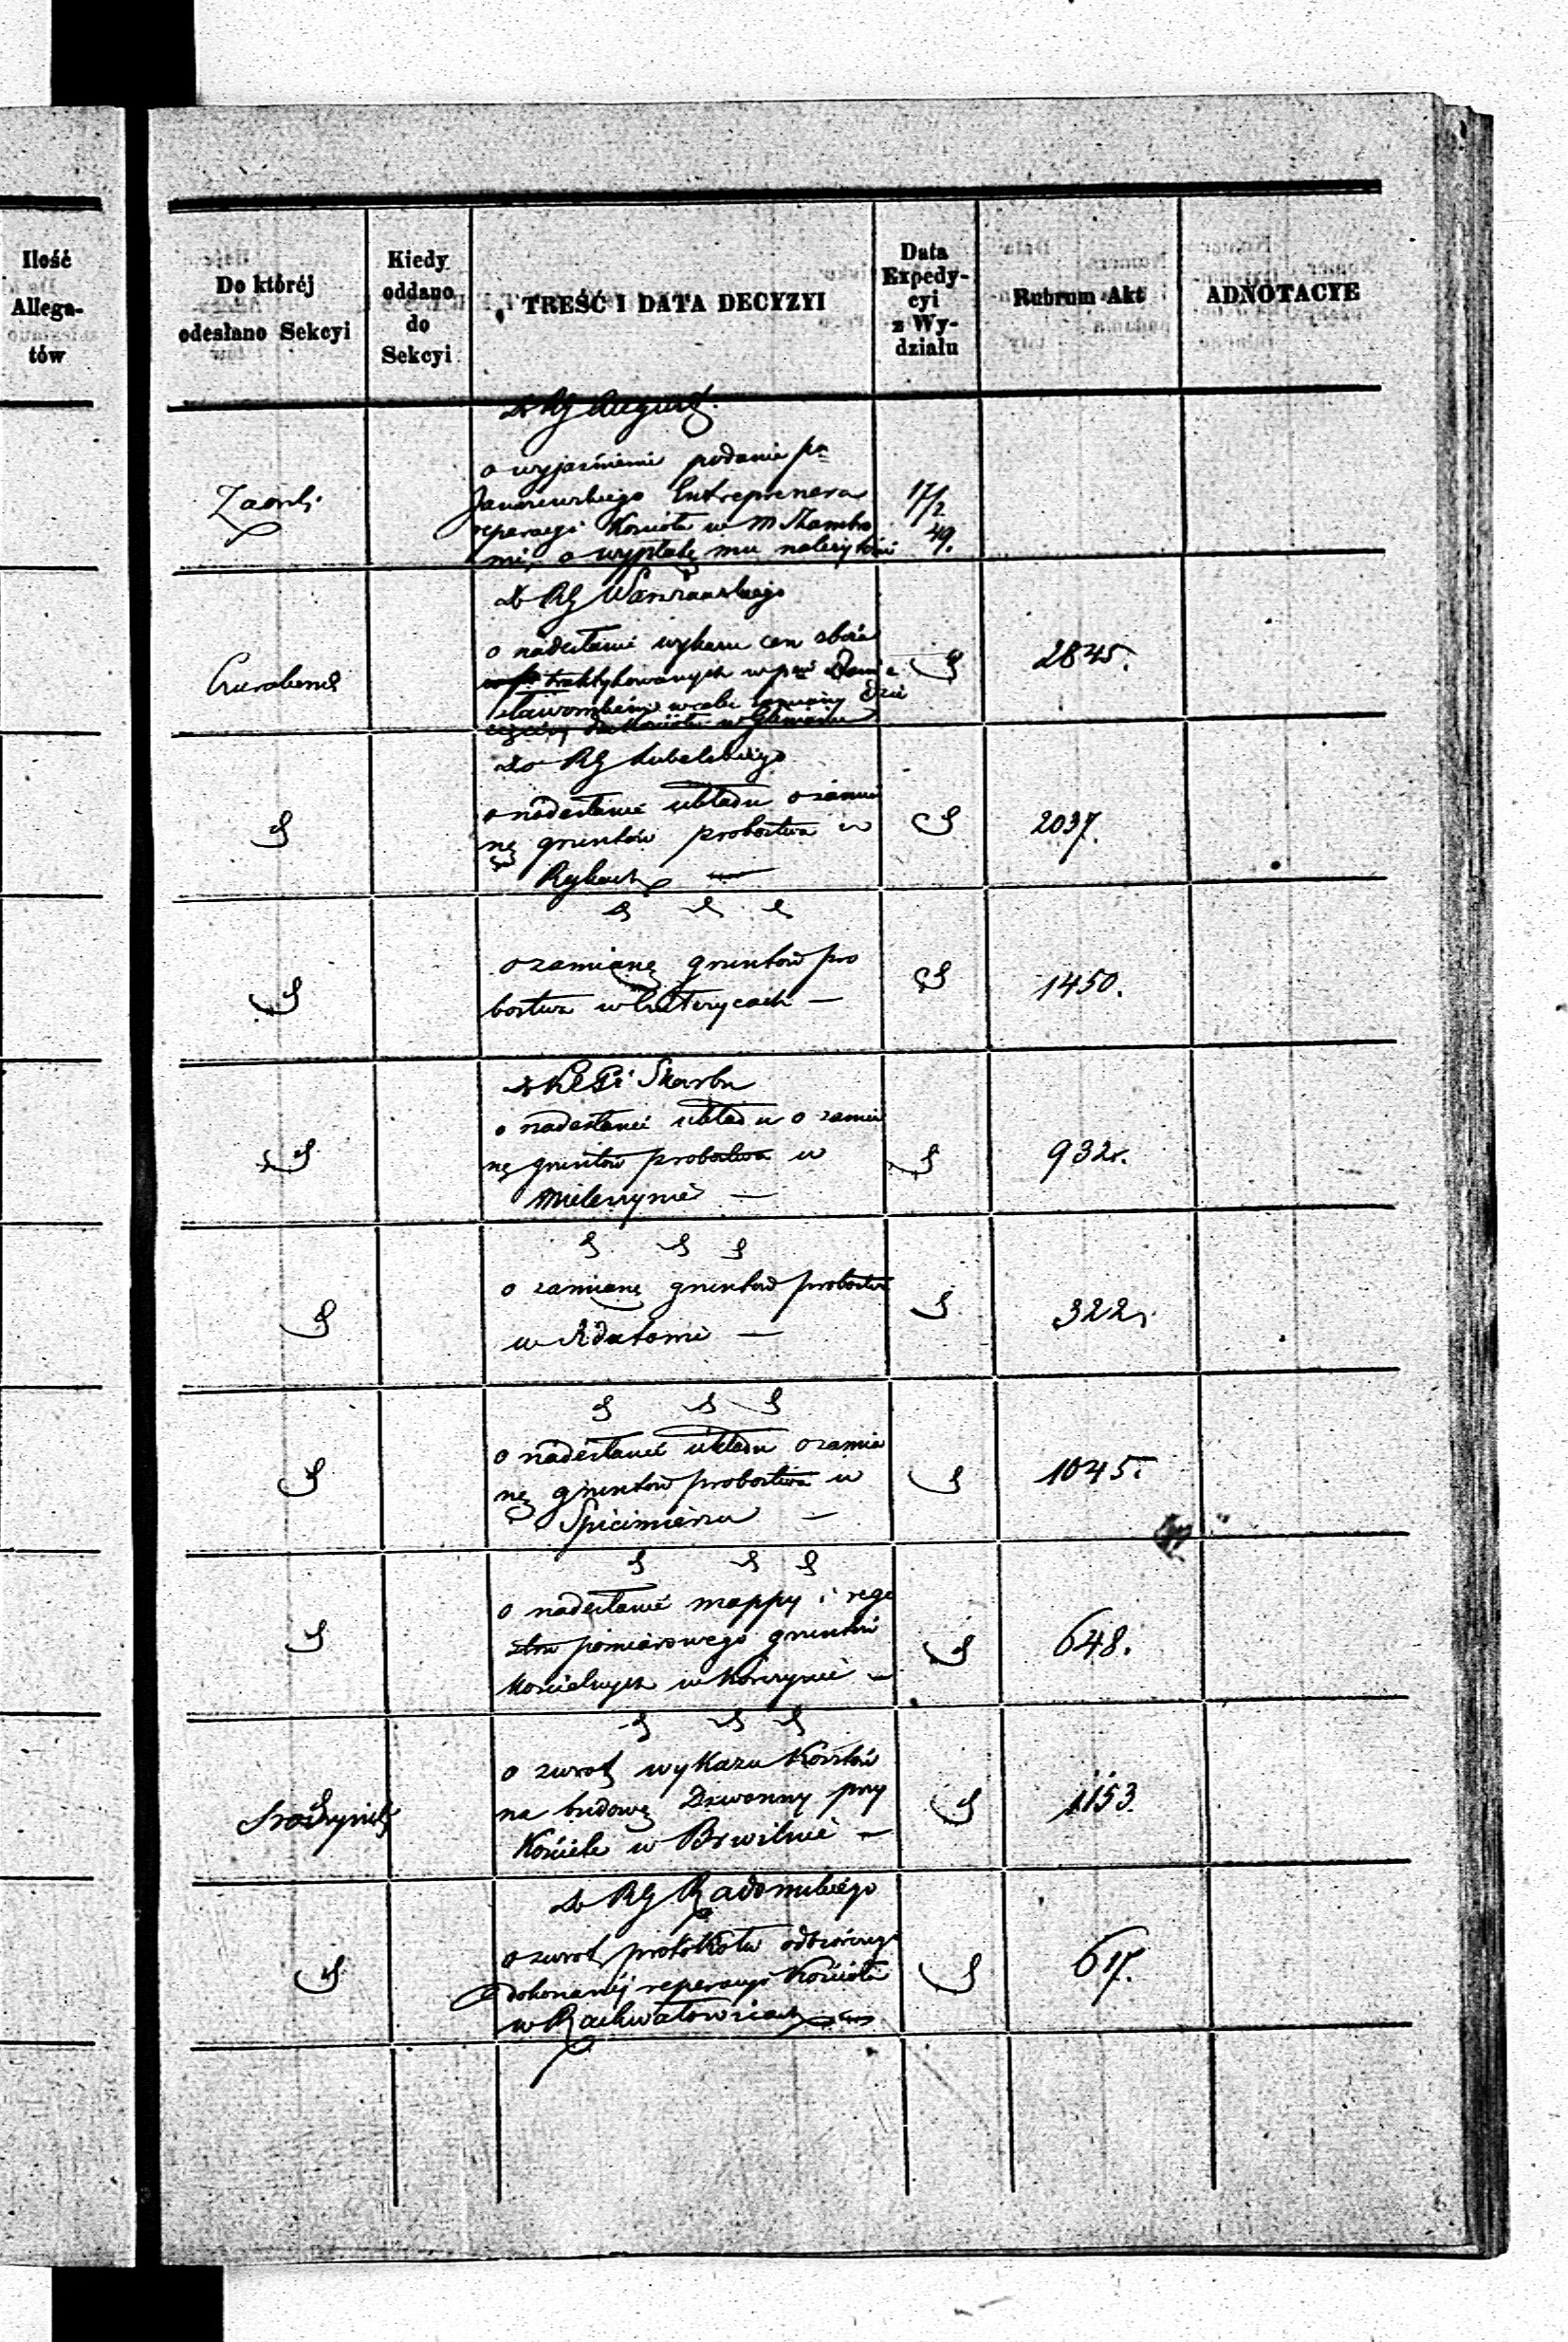 Ilość
Allega-
tów
Do któréj
odesłano Sekcyi
Kiedy
oddano
do
Sekcyi
TREŚĆ I DATA DECYZYI
Data
Expedy-
cyi
z Wy-
działu
Rubrum Akt
ADNOTACYE
Do RG August.
o wyjaśnienie podania pa
Entreprenera
reperacyi Kościoła w m
o wypłatę mu należytości
17/2
49.
Do RG Warszawskiego
o nadesłanie wykazu cen zboża
praktykowanych w
2845.
Do RG Lubelskiego
o nadesłanie układu o zamia
nę gruntów probostwa w
Rykach
2037.
o zamianę gruntów pro
bostwa w
1450.
Skarbu
o nadesłanie układu o zamia
nę gruntów probostwa w
Mielerzynie —
932.
o zamianę gruntów probostwa
w —
322.
o nadesłanie układu o zamia
nę gruntów probostwa w
Spicimierzu —
1045.
o nadesłanie mappy i reje
stru pomiarowego gruntów
Kościelnych w —
648.
o zwrot wykazu Kosztów
na budowę Dzwonny przy
Kościele w Brwilnie —
1153.
Do RG Radomskiego
o zwrot protokołu odbiorczego
dokonanéj reperacyi Kościoła
w Rachwałowicach
617.